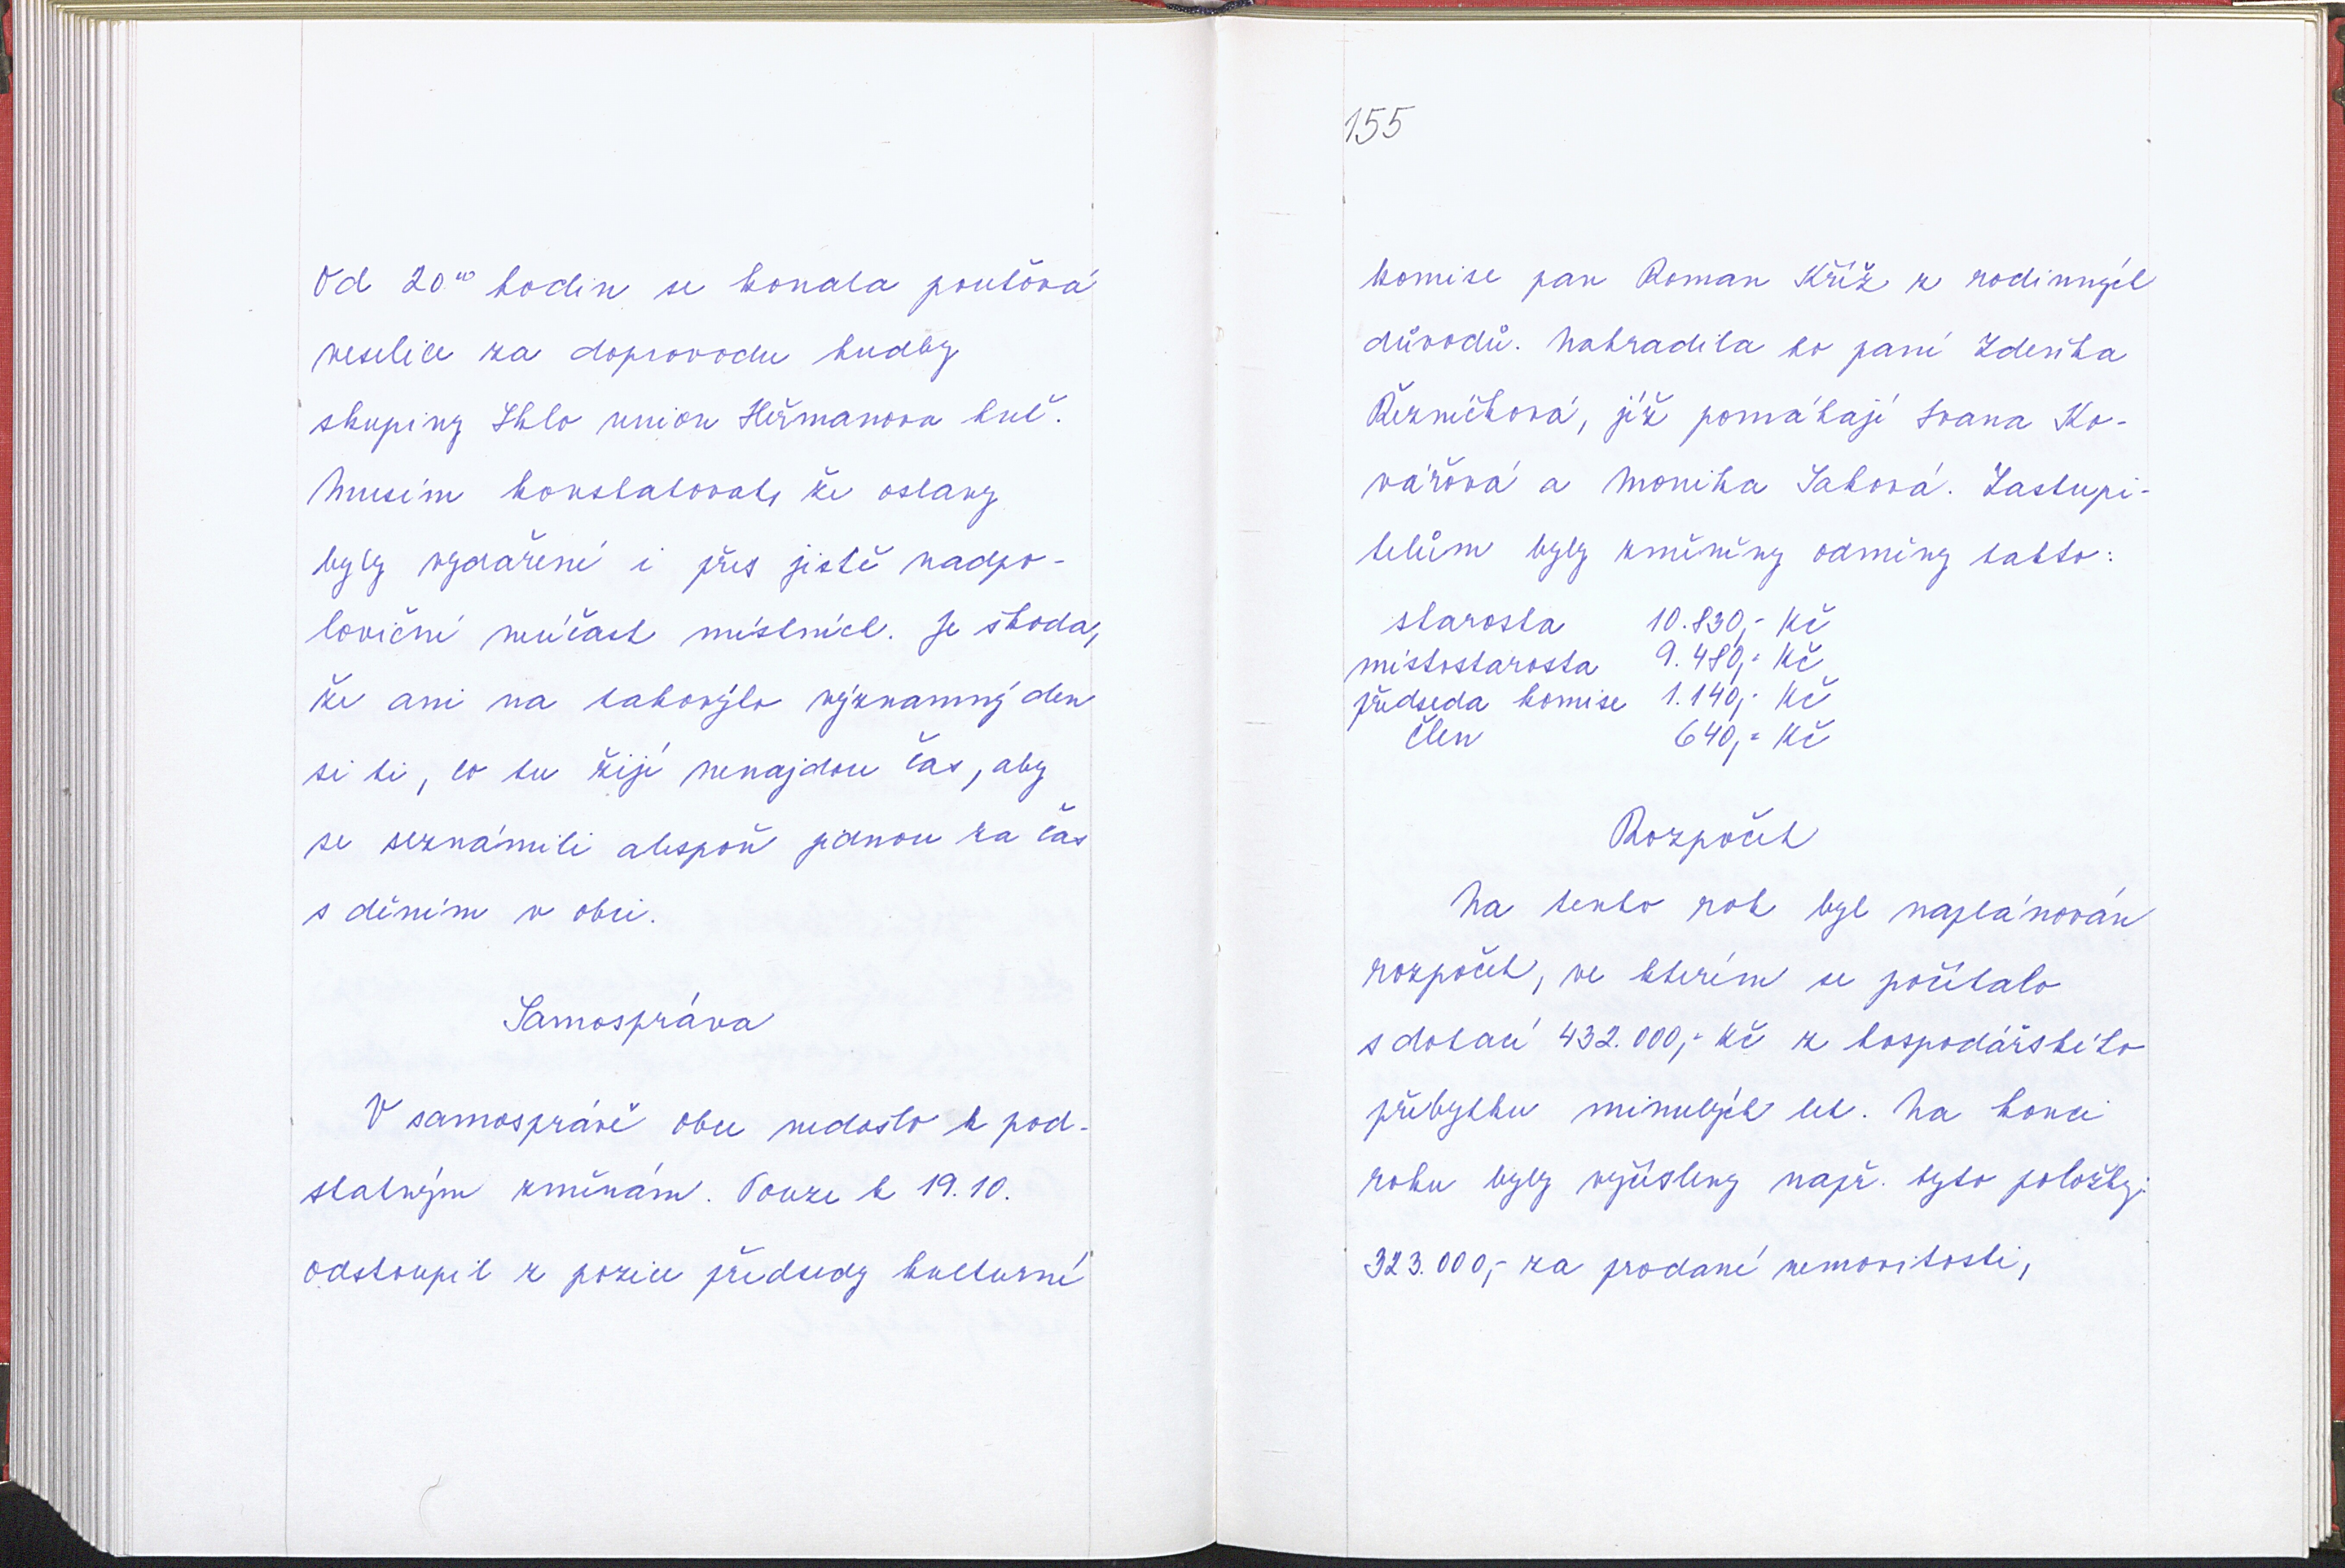 Od 20⁰⁰ hodin se konala pouťová
veselice za doprovodu hudby
skupiny Ihlo union Heřmanova huť.
Musím konstatovat, že oslavy
byly vydařené i přes jistě nadpo-
loviční neúčast místních. Je škoda,
že ani na takovýto významný den
si ti, co tu žijí nenajdou čas, aby
se seznámili alespoň jednou za čas
s děním v obci.
Samospráva
V samosprávě obce nedošlo k pod-
statným změnám. Pouze k 19.10.
odstoupil z pozice předsedy kulturní
155
komise pan Roman Kříž z rodinných
důvodů. Nahradila ho paní Zdeňka
Řezníčková, jíž pomáhají Ivana Ko-
vářová a Monika Saková. Zastupi-
telům byly změněny odměny takto:
starosta 10.830,- Kč
místostarosta 9.480,- Kč
předseda komise 1.140,- Kč
člen 640,- Kč
Rozpočet
Na tento rok byl naplánován
rozpočet, ve kterém se počítalo
s dotací 432.000,- Kč z hospodářského
přebytku minulých let. Na konci
roku byly vyčísleny např. tyto položky:
323.000,- za prodané nemovitosti,